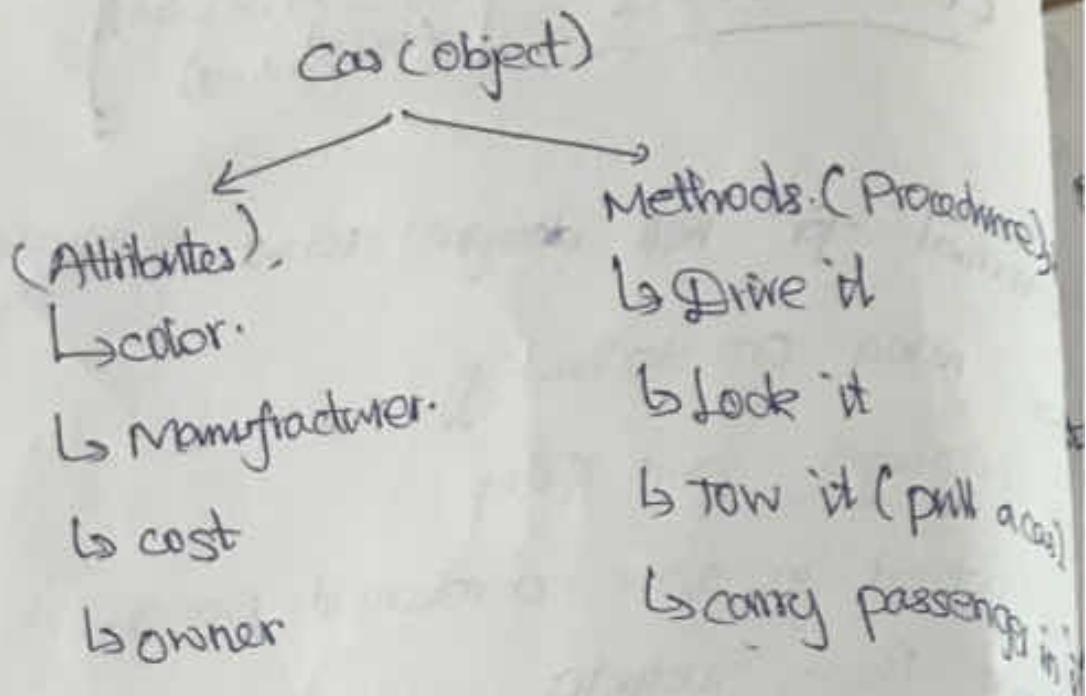 Car (object)
(Attributes).
↳ color.
↳ Manufracturer.
↳ cost
↳ owner
Methods. (Procedure)
↳ Drive it
↳ Lock it
↳ Tow it (pull a car)
↳ carry passenger in it